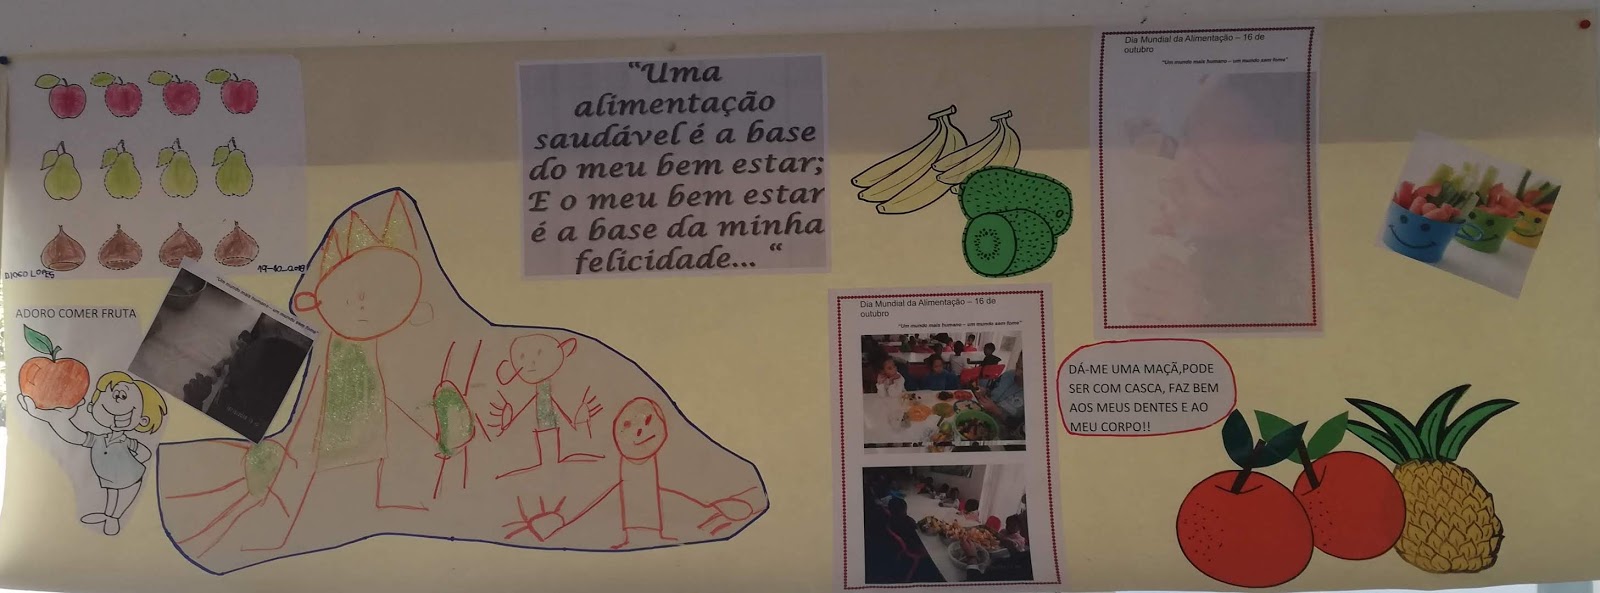 DIOGO LOPES
ADORO COMER FRUTA
"Um mundo mais humano – um mundo sem fome"
"Uma
alimentação
saudável é a base
do meu bem estar;
E o meu bem estar
é a base da minha
felicidade... "
Dia Mundial da Alimentação – 16 de
outubro
"Um mundo mais humano – um mundo sem fome"
Dia Mundial da Alimentação – 16 de
outubro
"Um mundo mais humano – um mundo sem fome"
DÁ-ME UMA MAÇÃ,PODE
SER COM CASCA, FAZ BEM
AOS MEUS DENTES E AO
MEU CORPO!!